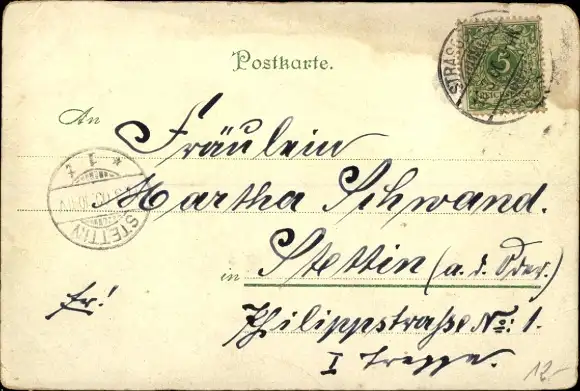 Postkarte.
STRASS
5
An Fräulein
Martha Schwand.
in Stettin (a. d. Oder.)
Philippstraße No: 1.
I Treppe.
fr!
STETTIN
12.-